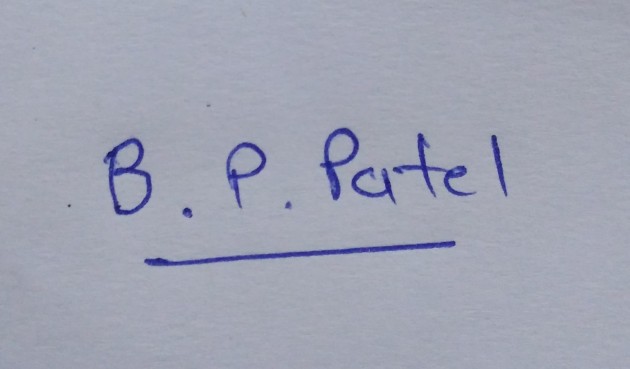 B. P. Patel